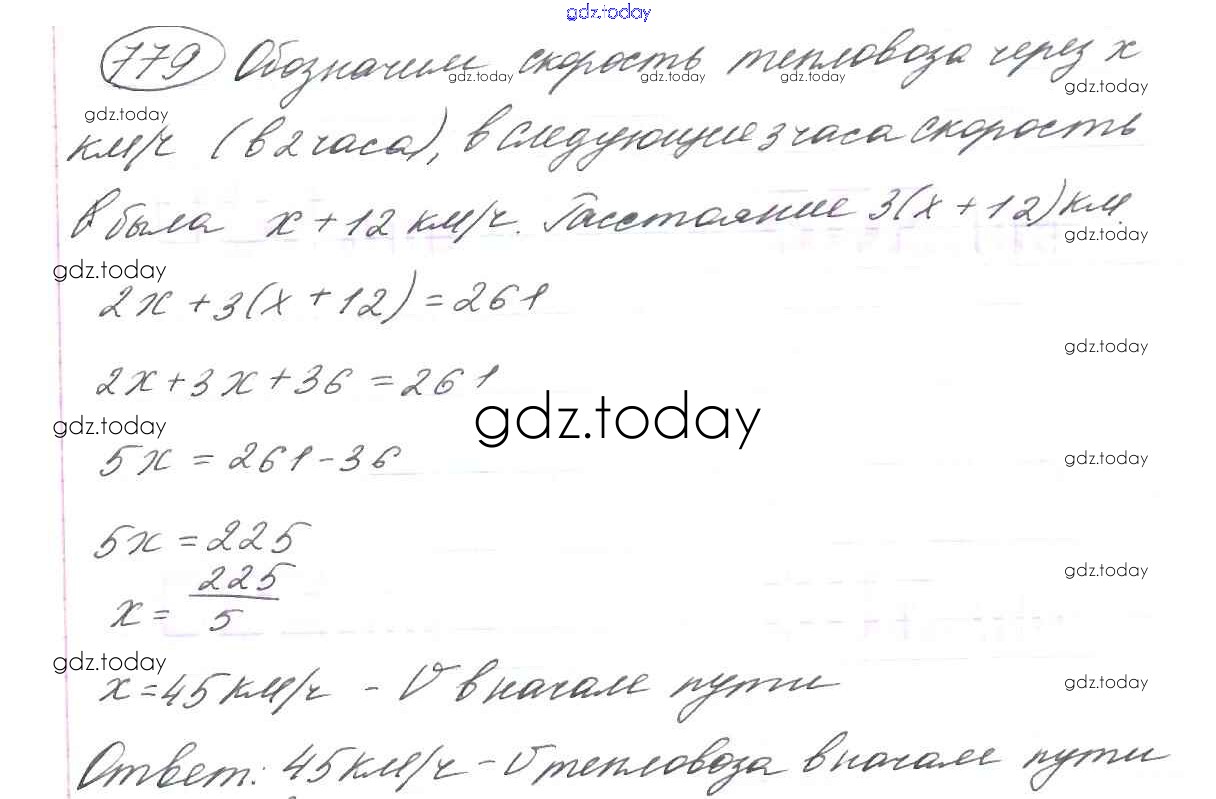 gdz.today
779 Обозначим скорость тепловоза через x
gdz.today gdz.today gdz.today gdz.today
gdz.today
км/ч (в 2 часа), в следующие 3 часа скорость
в была x + 12 км/ч. Расстояние 3(x + 12) км.
gdz.today
gdz.today
2x + 3(x + 12) = 261
gdz.today
2x + 3x + 36 = 261
gdz.today
gdz.today
5x = 261 - 36
gdz.today
5x = 225
gdz.today
x = 225/5
gdz.today
x = 45 км/ч - V в начале пути
gdz.today
Ответ: 45 км/ч - V тепловоза в начале пути